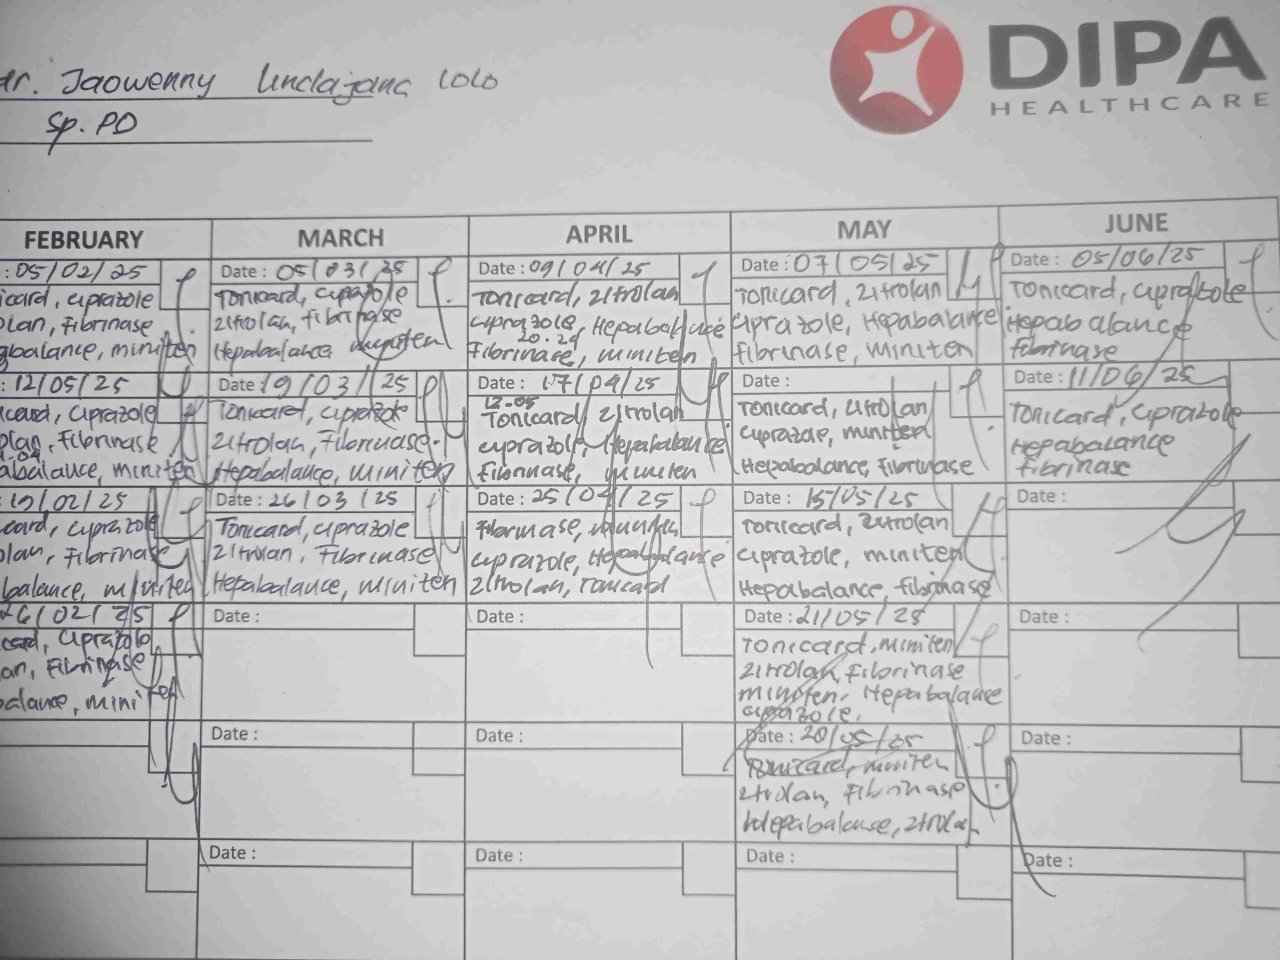 dr. Jaowenny Lolo
Sp. PD
DIPA
HEALTHCARE
FEBRUARY
: 05/02/25
icard, Ciprazole
olan, Fibrinase
abalance, miniten
: 12/05/25
icard, Ciprazole
olan, Fibrinase
abalance, miniten
: 19/02/25
card, Ciprazole
olan, Fibrinase
balance, miniten
26/02/25
card, Ciprazole
an, Fibrinase
balance, miniten
MARCH
Date : 05/03/25
Tonicard, Ciprazole
Zitrolan, fibrinase
Hepabalance miniten
Date : 19/03/25
Tonicard, Ciprazole
Zitrolan, Fibrinase
Hepabalance, miniten
Date : 26/03/25
Tonicard, Ciprazole
Zitrolan, Fibrinase
Hepabalance, miniten
Date :
Date :
Date :
APRIL
Date : 09/04/25
Tonicard, Zitrolan
Ciprazole, Hepabalance
20.24
Fibrinase, miniten
Date : 17/04/25
12.05
Tonicard, Zitrolan
Ciprazole, Hepabalance
Fibrinase, miniten
Date : 25/04/25
Fibrinase, miniten
Ciprazole, Hepabalance
Zitrolan, Tonicard
Date :
Date :
Date :
MAY
Date : 07/05/25
Tonicard, Zitrolan
Ciprazole, Hepabalance
Fibrinase, miniten
Date :
Tonicard, Zitrolan
Ciprazole, miniten
Hepabalance, Fibrinase
Date : 15/05/25
Tonicard, Zitrolan
Ciprazole, miniten
Hepabalance, fibrinase
Date : 21/05/25
Tonicard, miniten
Zitrolan, Fibrinase
miniten, Hepabalance
Ciprazole,
Date : 28/05/25
Tonicard, miniten
Zitrolan, Fibrinase
Hepabalance, Zitrolan
Date :
JUNE
Date : 05/06/25
Tonicard, Ciprazole
Hepabalance
fibrinase
Date : 11/06/25
Tonicard, Ciprazole
Hepabalance
fibrinase
Date :
Date :
Date :
Date :